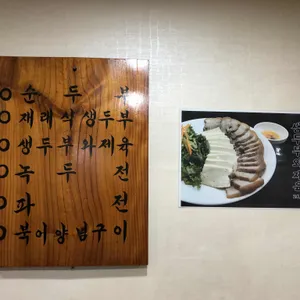 ○ 순두부
○ 재래식생두부
○ 생두부와제육
○ 녹두전
○ 파전
○ 북어양념구이